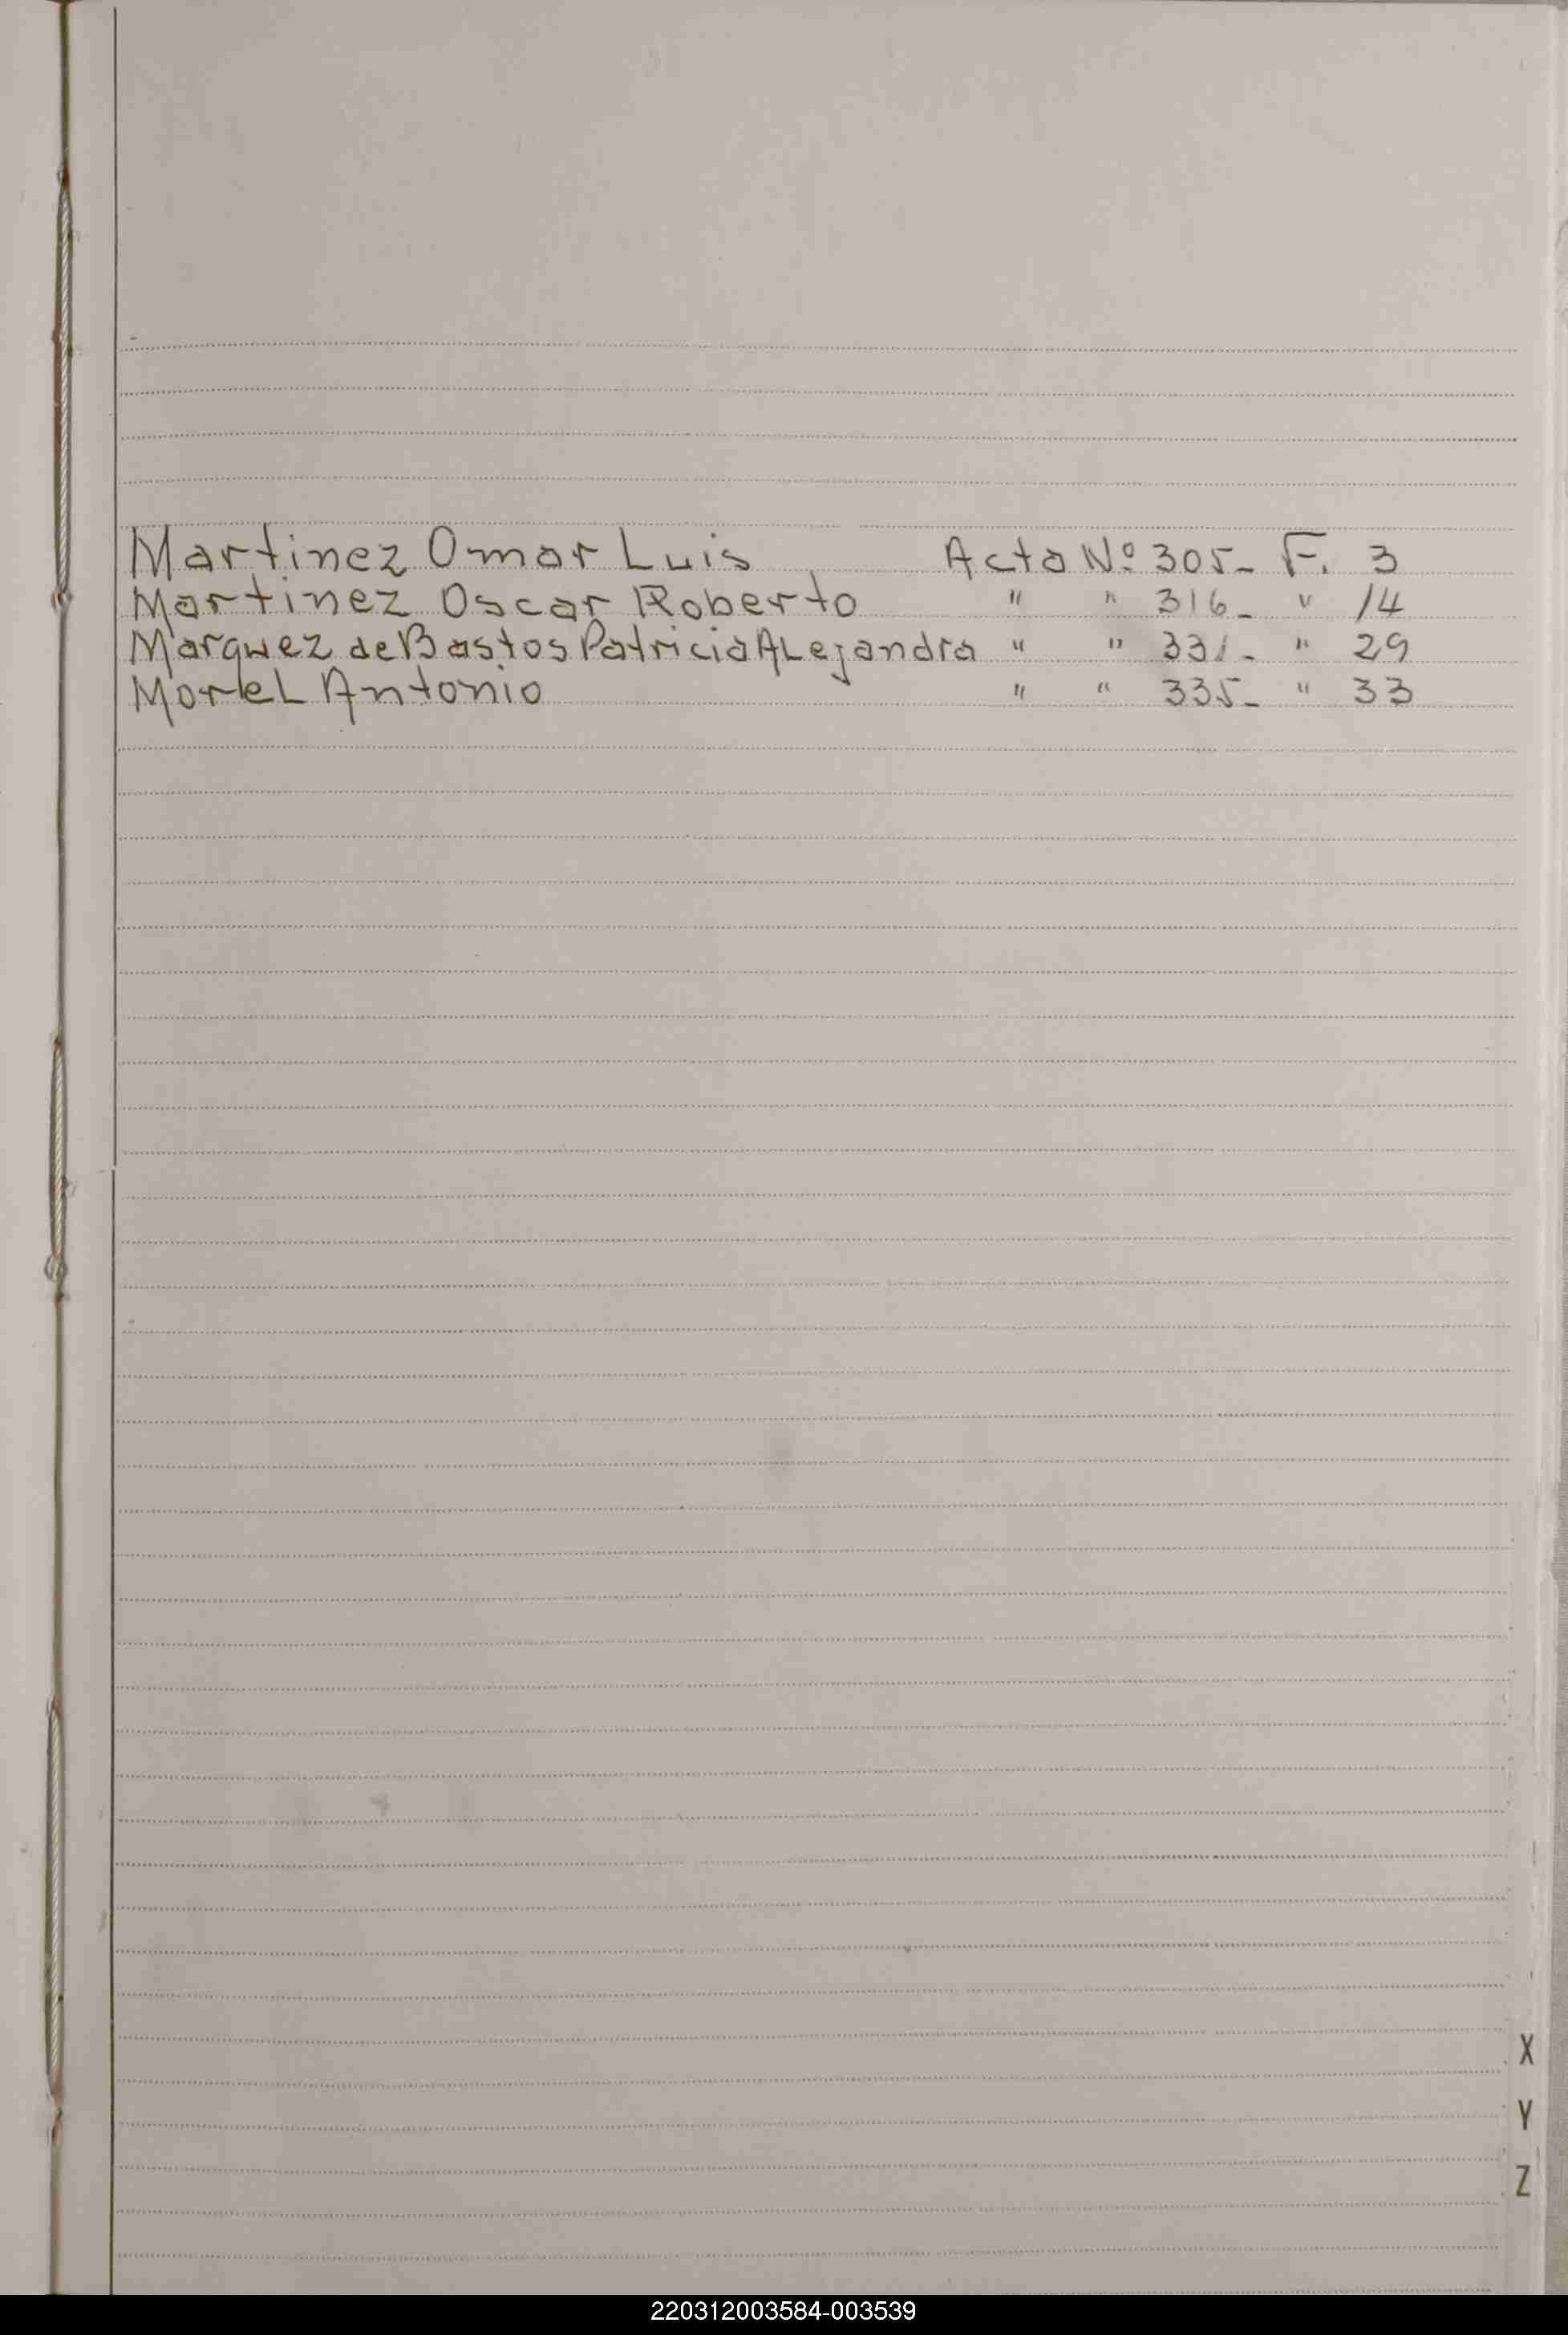 Martinez Omar Luis Acta Nº 305- F. 3
Martinez Oscar Roberto " " 316- " 14
Marquez de Bastos Patricia Alejandra " " 331- " 29
Morel Antonio " " 335- " 33
X
Y
Z
220312003584-003539